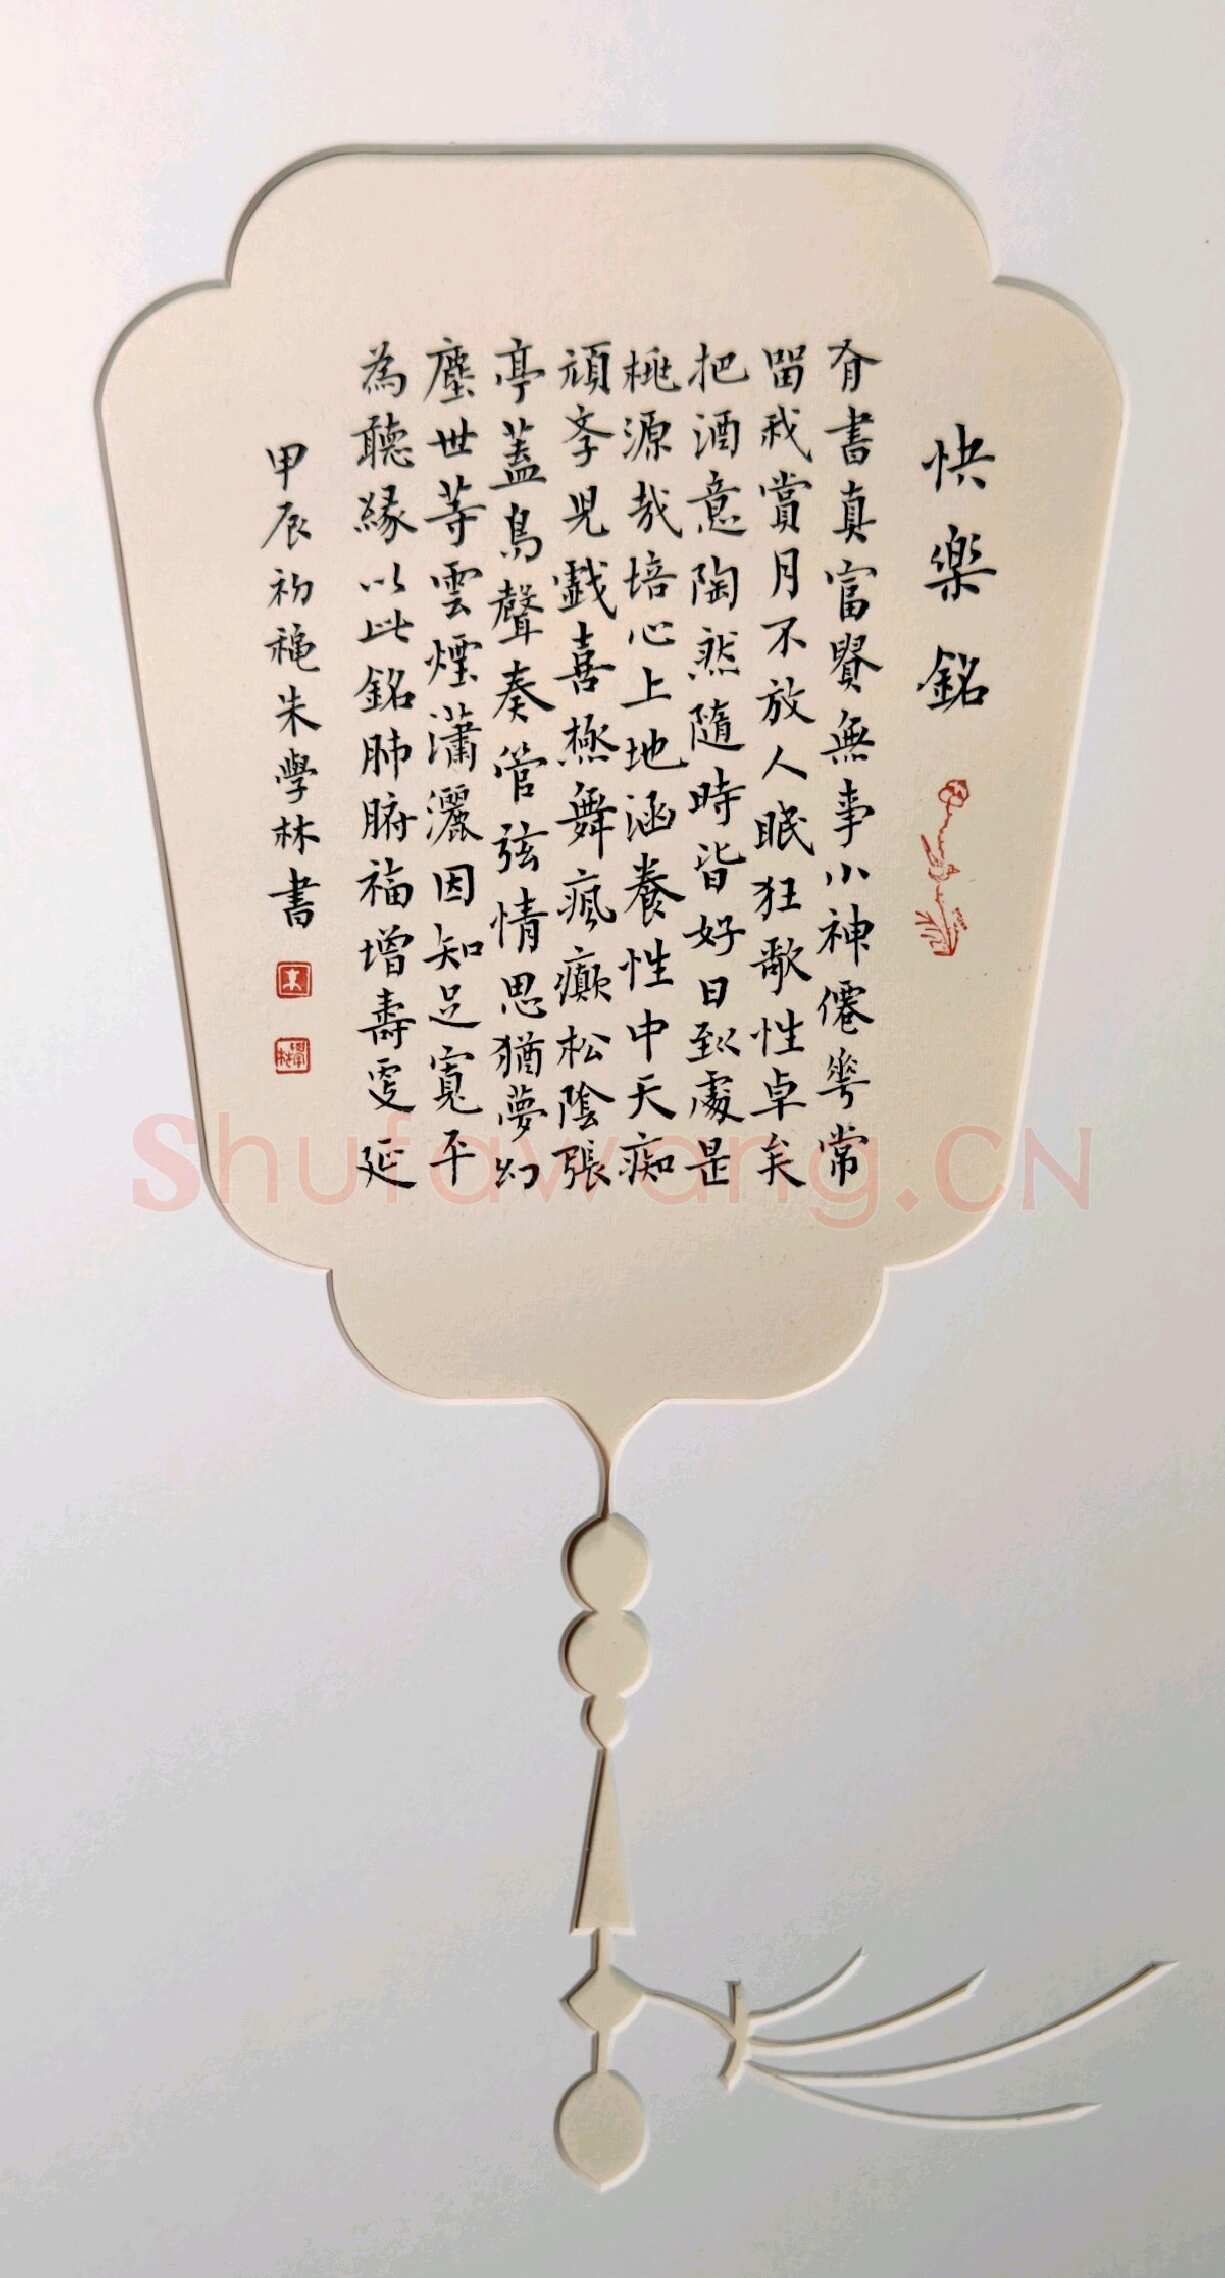 快樂銘
有書真富貴無事小神僊花常
留我賞月不放人眠狂歌性卓矣
把酒意陶然隨時皆好日到處是
桃源哉培心上地涵養性中天痴
頑孝兒戲喜極舞瘋癲松陰張
亭蓋鳥聲奏管弦情思猶夢幻
塵世等雲煙瀟灑因知足寬平
為聽緣以此銘肺腑福增壽更延
甲辰初龝朱學林書
Shufawang.CN